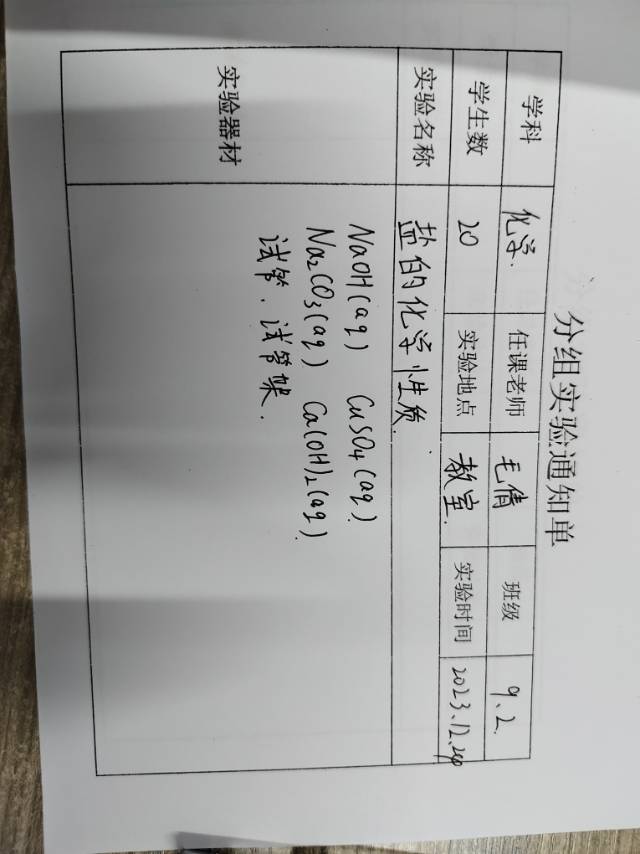 分组实验通知单
学科 化学. 任课老师 毛倩 班级 9.2.
学生数 20 实验地点 教室. 实验时间 2023.12.
实验名称 盐的化学性质.
实验器材
NaOH(aq) CuSO4(aq)
Na2CO3(aq) Ca(OH)2(aq)
试管. 试管架.